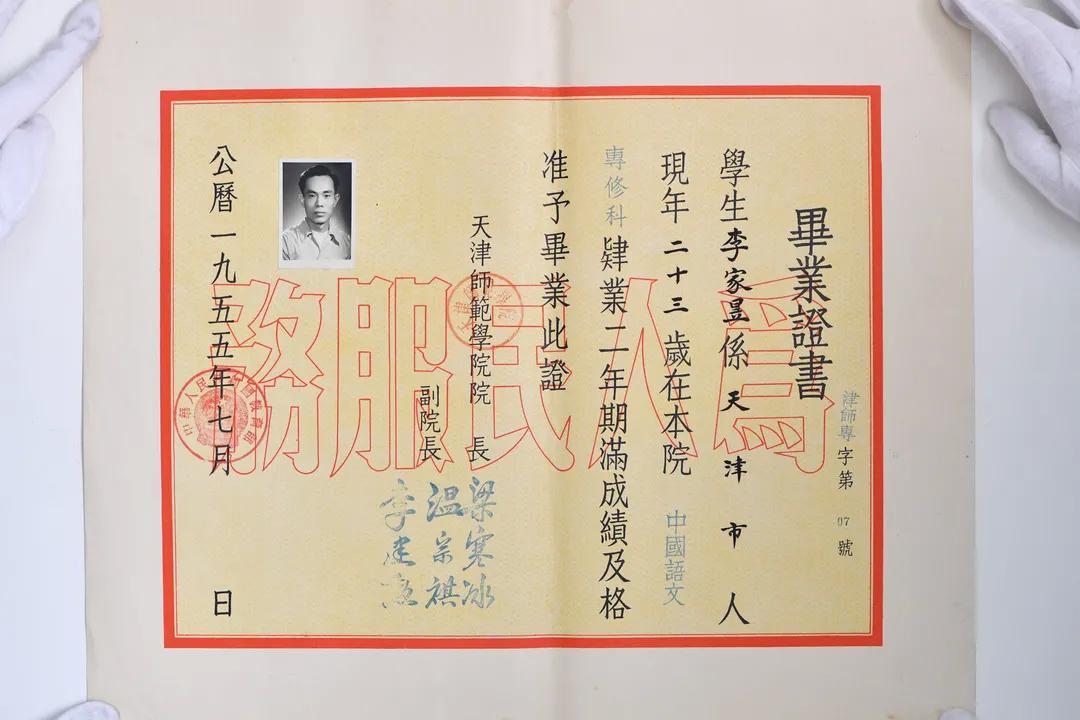 畢業證書
津師專字第07號
學生李家昱係天津市人
現年二十三歲在本院中國語文
專修科肄業二年期滿成績及格
准予畢業此證
天津師範學院院長梁寒冰
副院長温宗祺
李建
公曆一九五五年七月日
為人民服務